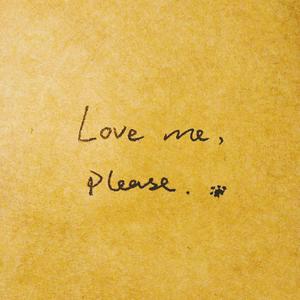 Love me,
please.